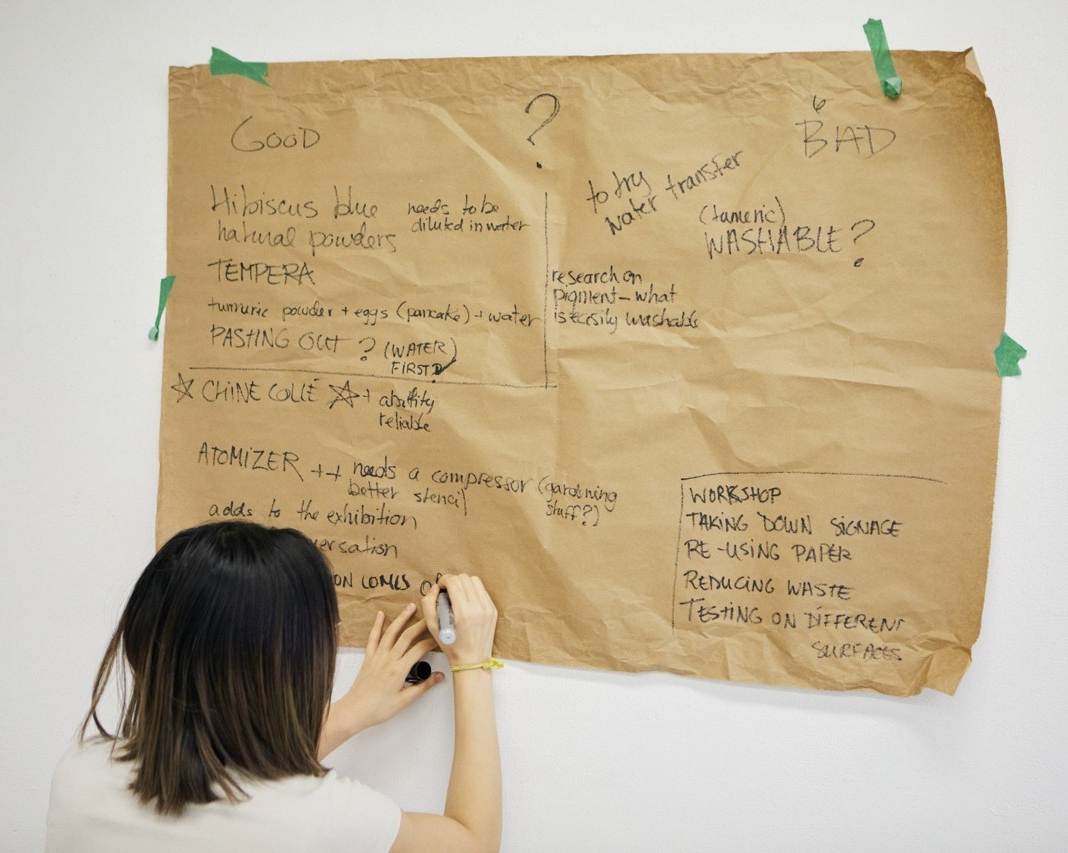 GOOD
?
BAD
Hibiscus blue
natural powders
needs to be
diluted in water
TEMPERA
turmuric powder + eggs (pancake) + water
PASTING OUT ? (WATER)
FIRST?
to try
water transfer
(tumeric)
WASHABLE?
research on
pigment - what
is easily washable
☆ CHINE COLLÉ ☆ +
reliable
ATOMIZER ++ needs a compressor (gardning
better stencil
stuff?)
adds to the exhibition
ON COMES
WORKSHOP
TAKING DOWN SIGNAGE
RE-USING PAPER
REDUCING WASTE
TESTING ON DIFFERENT
SURFACES